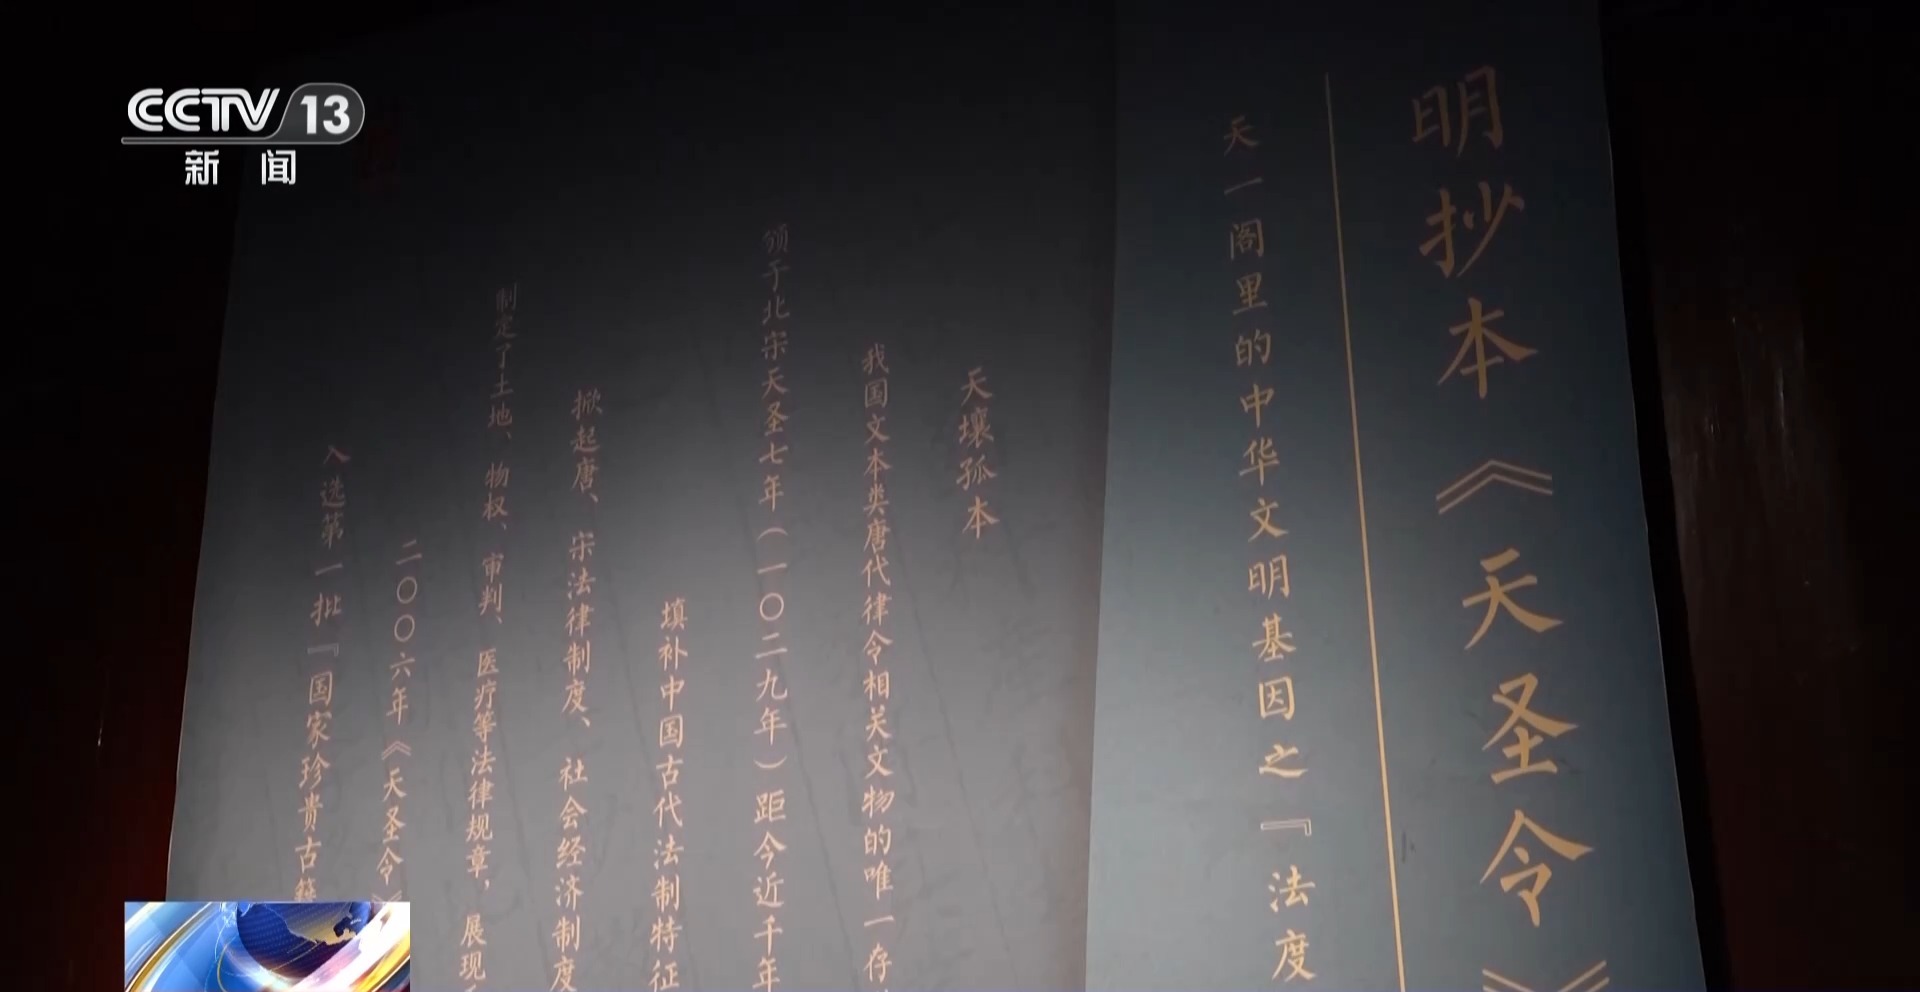 CCTV 13
新闻
明抄本《天圣令》
天一阁里的中华文明基因之『法度
天壤孤本
我国文本类唐代律令相关文物的唯一存
颁于北宋天圣七年（一〇二九年）距今近千年
填补中国古代法制特征
掀起唐、宋法律制度、社会经济制度
制定了土地、物权、审判、医疗等法律规章，展现
二〇〇六年《天圣令》
入选第一批『国家珍贵古籍